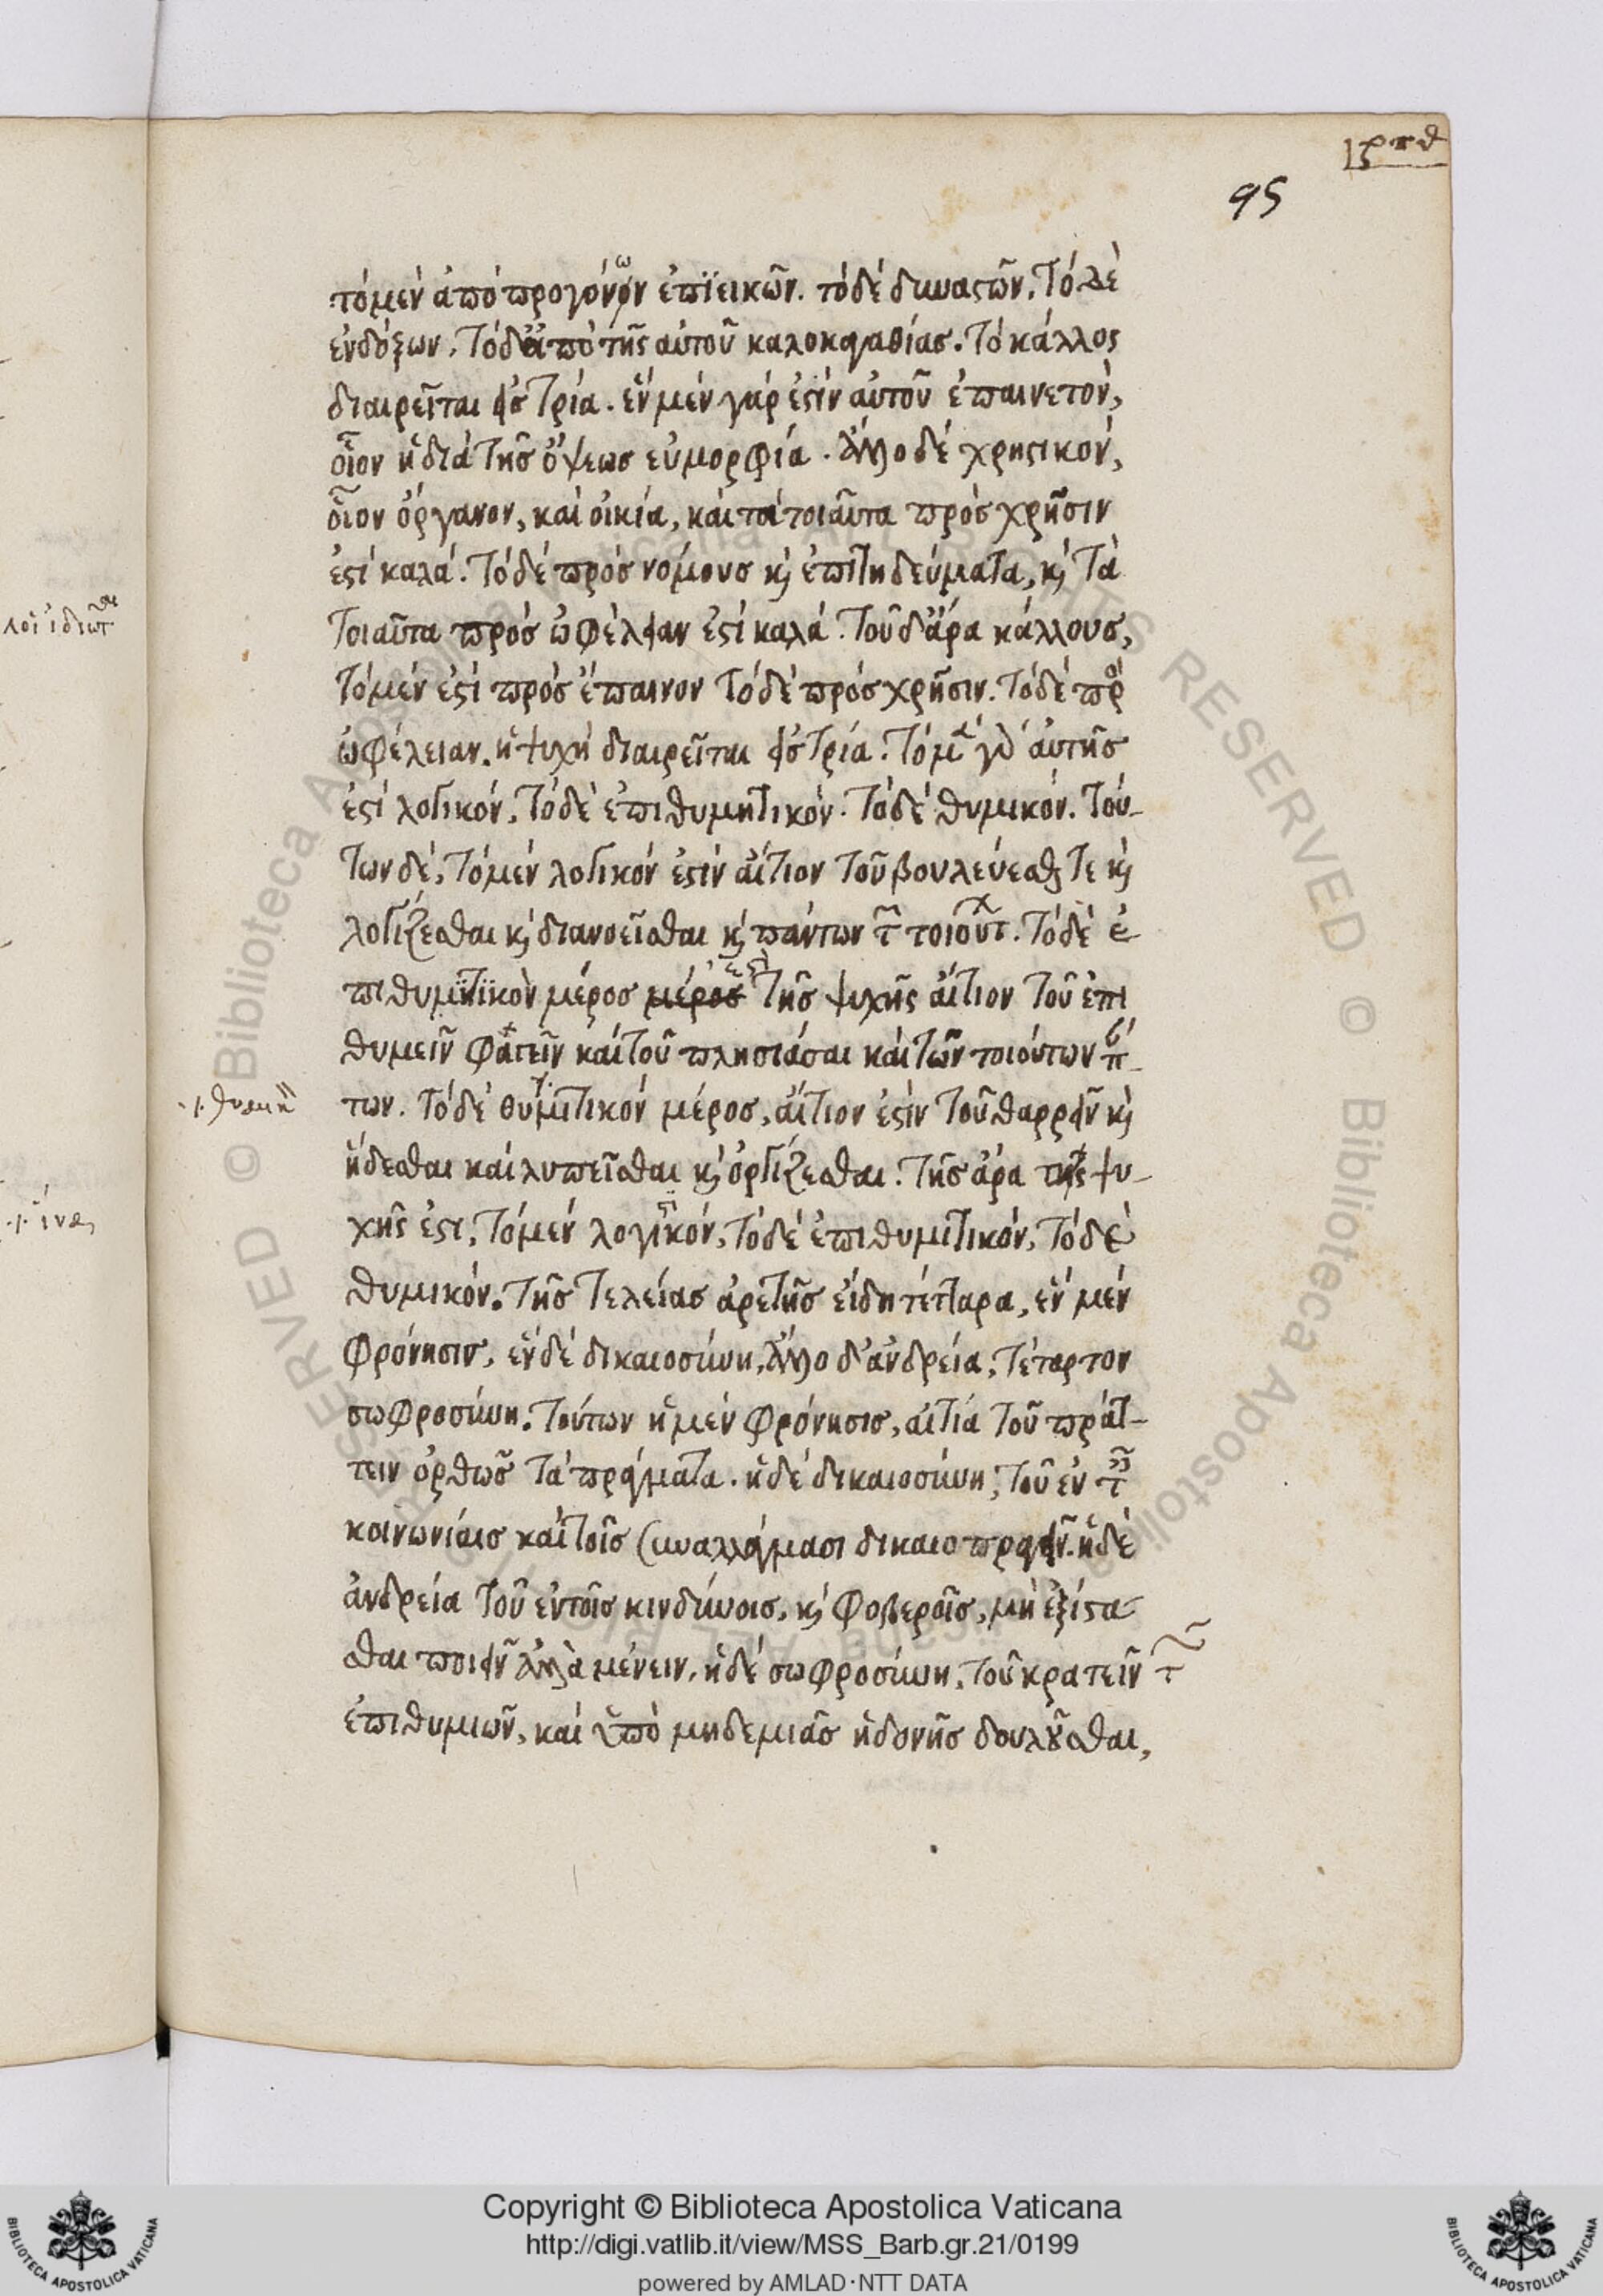 ρπθ
95
τὸ μὲν ἀπὸ προγόνων ἐπϊεικῶν. τὸ δὲ δυναστῶν. τὸ δὲ
ἐνδόξων. τὸ δὲ ἀπὸ τῆς αὑτοῦ καλοκαγαθίας. τὸ κάλλος
διαιρεῖται εἰς τρία. ἓν μὲν γάρ ἐστιν αὐτοῦ ἐπαινετὸν,
οἷον ἡ διὰ τῆς ὄψεως εὐμορφία. ἄλλο δὲ χρηστικὸν,
οἷον ὄργανον, καὶ οἰκία, καὶ τὰ τοιαῦτα πρὸς χρῆσιν
ἐστὶ καλά. τὸ δὲ πρὸς νόμους κὶ ἐπιτηδεύματα, κὶ τὰ
τοιαῦτα πρὸς ὠφέλειαν ἐστὶ καλά. τοῦ δ' ἄρα κάλλους,
τὸ μέν ἐστι πρὸς ἔπαινον τὸ δὲ πρὸς χρῆσιν. τὸ δὲ πρὸ
ὠφέλειαν. ἡ ψυχὴ διαιρεῖται εἰς τρία. τὸ μὲν γὰρ αὐτῆς
ἐστὶ λογικόν. τὸ δὲ ἐπιθυμητικόν. τὸ δὲ θυμικόν. τού-
των δὲ, τὸ μὲν λογικόν ἐστιν αἴτιον τοῦ βουλεύεσθαι τε κὶ
λογίζεσθαι κὶ διανοεῖσθαι κὶ πάντων τ τοιούτ. τὸ δὲ ἐ-
πιθυμητϊκὸν μέρος ἐστὶ τῆς ψυχῆς αἴτιον τοῦ ἐπι
θυμεῖν φαγεῖν καὶ τοῦ πλησιάσαι καὶ τῶν τοιούτων πά-
·/. θυμικ
των. τὸ δὲ θυμιτικὸν μέρος, αἴτιον ἐστὶν τοῦ θαρρεῖν κὶ
ἥδεσθαι καὶ λυπεῖσθαι κὶ ὀργίζεσθαι. τῆς ἄρα τῆς ψυ-
χῆς ἐστι, τὸ μὲν λογικόν, τὸ δὲ ἐπιθυμιτικόν, τὸ δὲ
θυμικόν. τῆς τελείας ἀρετῆς εἴδη τέτταρα, ἓν μὲν
φρόνησιν, ἓν δὲ δικαιοσύνη, ἄλλο δ' ἀνδρεία, τέταρτον
σωφροσύνη. τούτων ἡ μὲν φρόνησις, αἰτία τοῦ πράτ-
τειν ὀρθῶς τὰ πράγματα. ἡ δὲ δικαιοσύνη, τοῦ ἐν τ
κοινωνίαις καὶ τοῖς συναλλάγμασι δικαιοπραγεῖν. ἡ δὲ
ἀνδρεία τοῦ ἐν τοῖς κινδύνοις, κὶ φοβεροῖς, μὴ ἐξίστα
σθαι ποιεῖν ἀλλὰ μένειν. ἡ δὲ σωφροσύνη, τοῦ κρατεῖν τ
ἐπιθυμιῶν, καὶ ὑπὸ μηδεμιᾶς ἡδονῆς δουλοῦσθαι,
·/. ἵνα
Copyright © Biblioteca Apostolica Vaticana
http://digi.vatlib.it/view/MSS_Barb.gr.21/0199
powered by AMLAD·NTT DATA
BIBLIOTECA APOSTOLICA VATICANA
BIBLIOTECA APOSTOLICA VATICANA